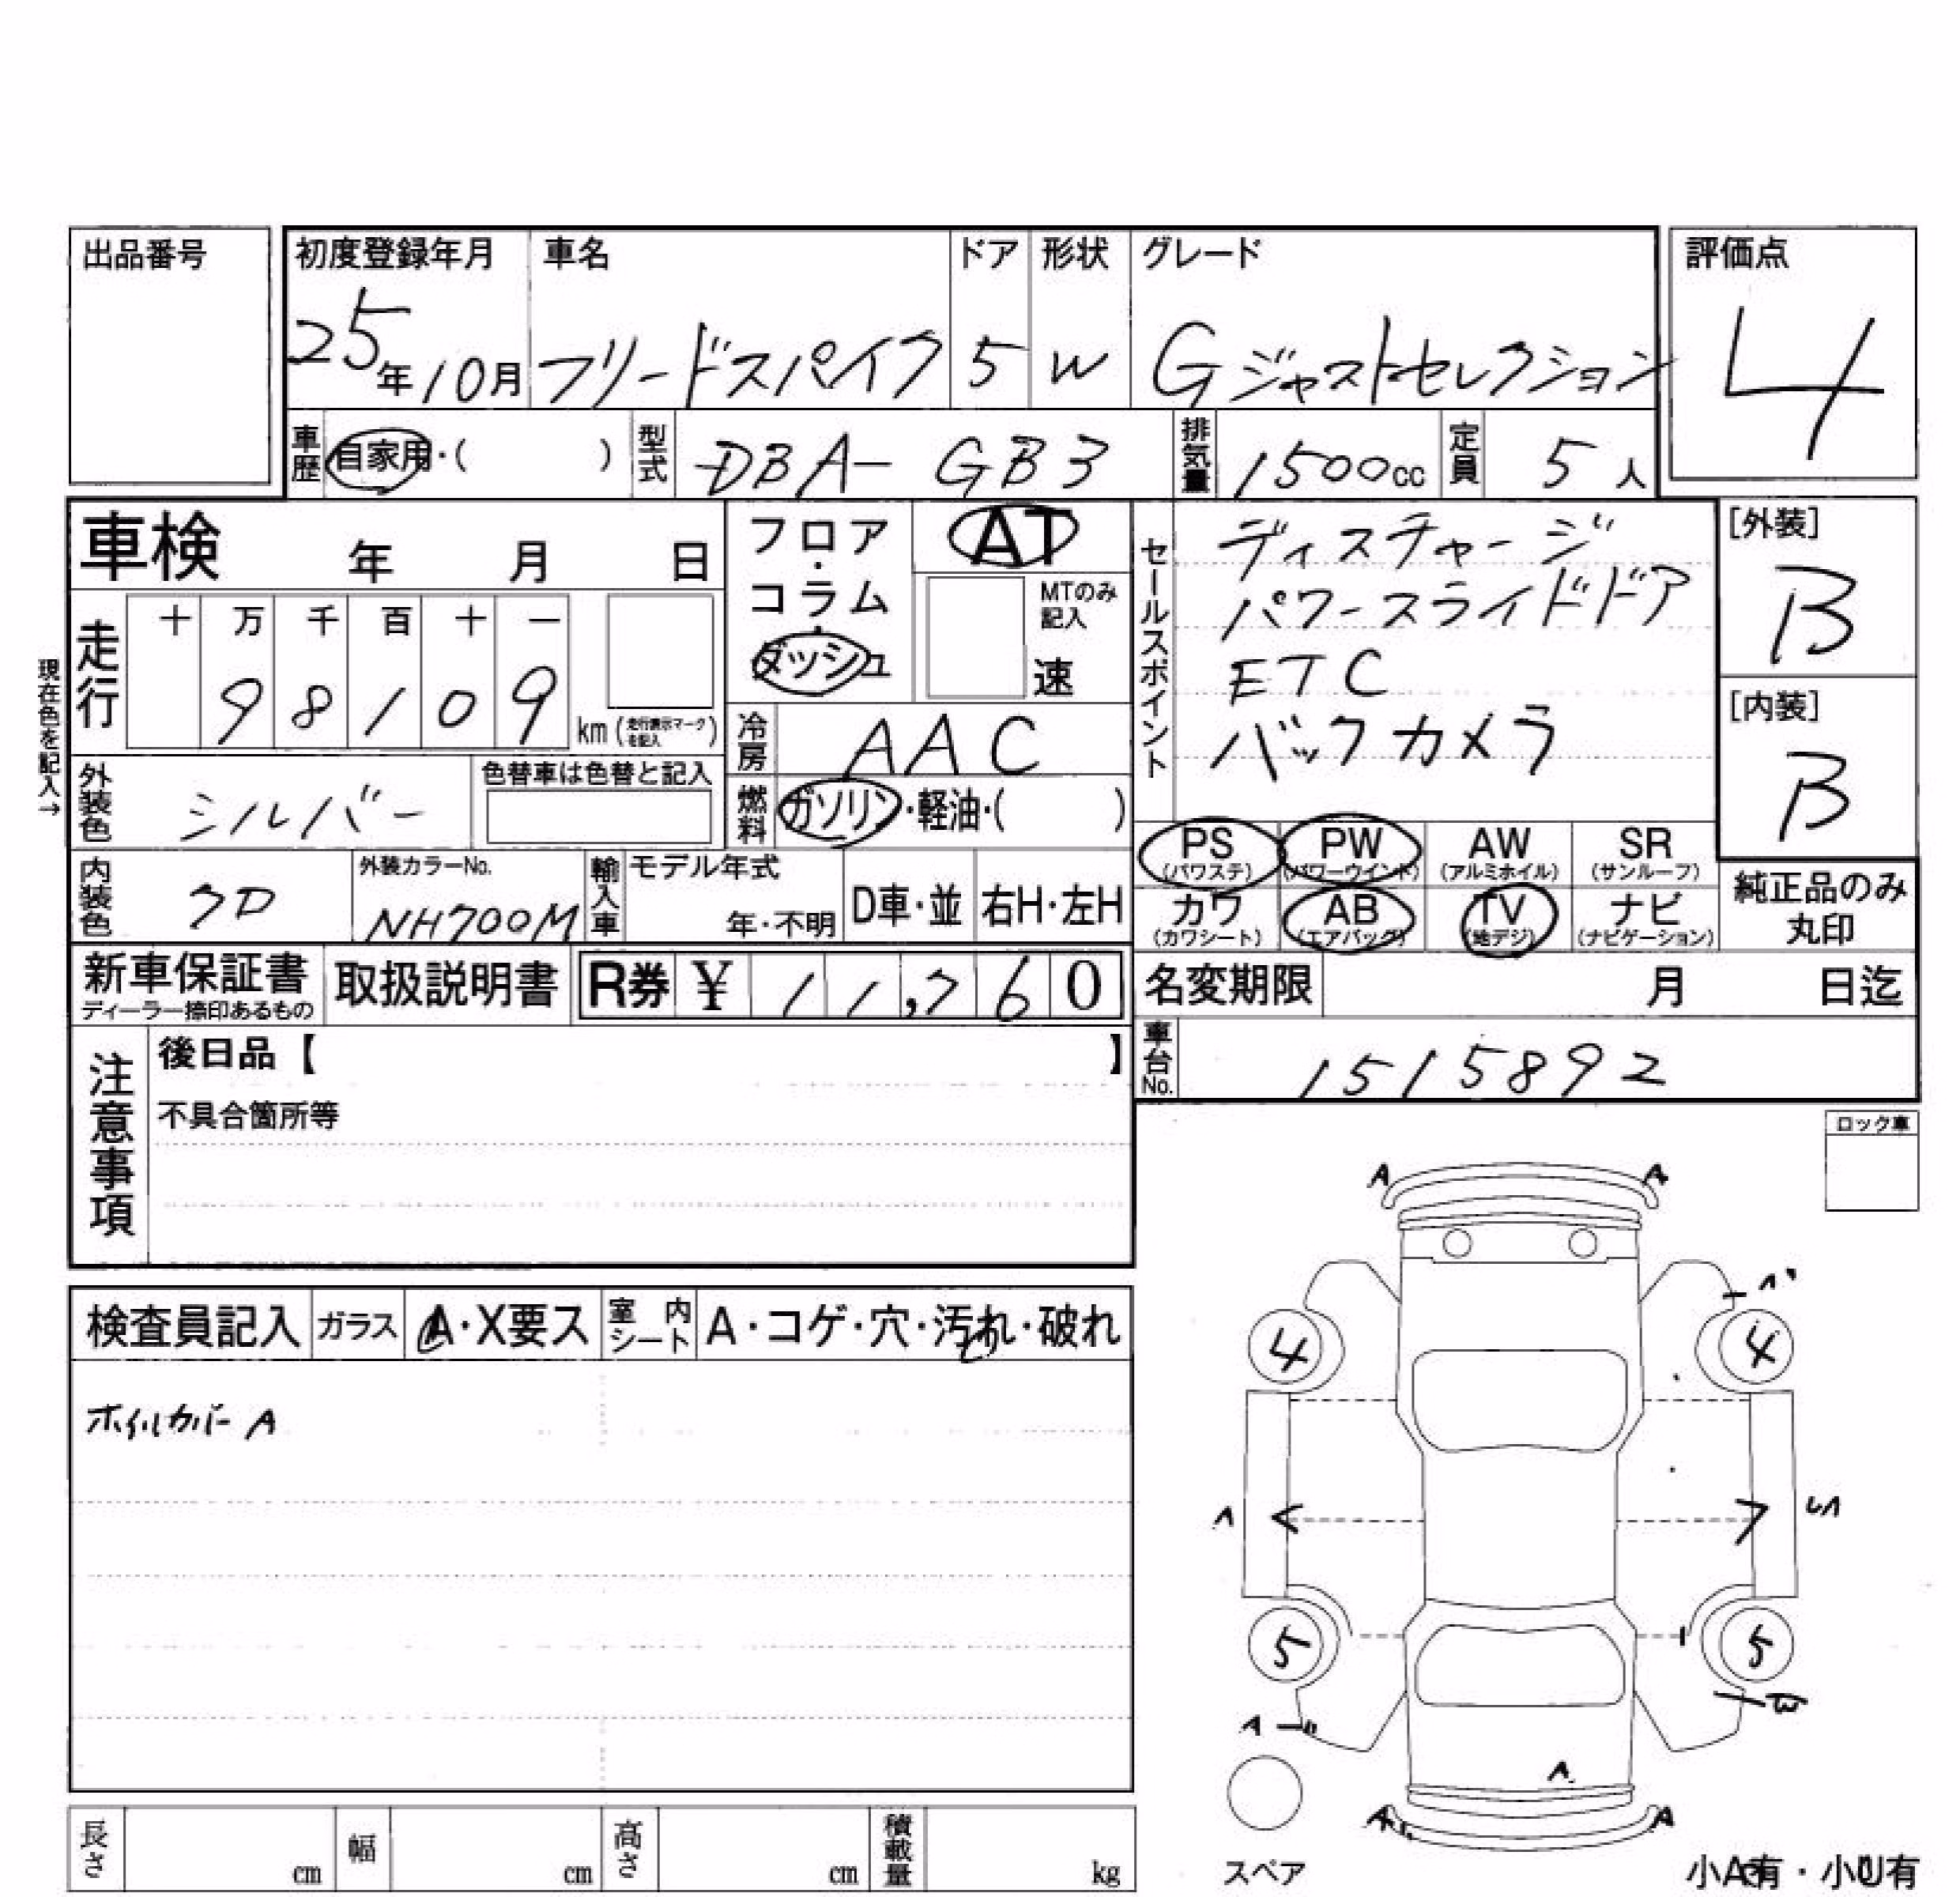 出品番号
初度登録年月 車名 ドア 形状 グレード
評価点
25年10月 フリードスパイク 5 W Gジャストセレクション
4
車歴 自家用・( ) 型式 DBA-GB3 排気量 1500cc 定員 5人
車検 年 月 日
フロア・コラム・ダッシュ
AT
MTのみ記入
速
セールスポイント
ディスチャージ
パワースライドドア
ETC
バックカメラ
[外装]
B
[内装]
B
現在色を記入→
走行
十 万 千 百 十 一
9 8 1 0 9
km (走行表示マークを記入)
冷房 AAC
外装色 シルバー 色替車は色替と記入
燃料 ガソリン・軽油・( )
PS (パワステ) PW (パワーウインド) AW (アルミホイル) SR (サンルーフ)
カワ (カワシート) AB (エアバッグ) TV (地デジ) ナビ (ナビゲーション)
純正品のみ丸印
内装色 クロ 外装カラーNo. NH700M 輸入車 モデル年式 年・不明 D車・並 右H・左H
新車保証書 ディーラー捺印あるもの 取扱説明書 R券 ¥ 11,760
名変期限 月 日迄
車台No. 1515892
注意事項
後日品【 】
不具合箇所等
ロック車
検査員記入 ガラス A・X要ス 室内シート A・コゲ・穴・汚れ・破れ
ホイルカバー A
A A
4 4
5 5
A
A
A A
スペア
小A有・小U有
長さ cm 幅 cm 高さ cm 積載量 kg